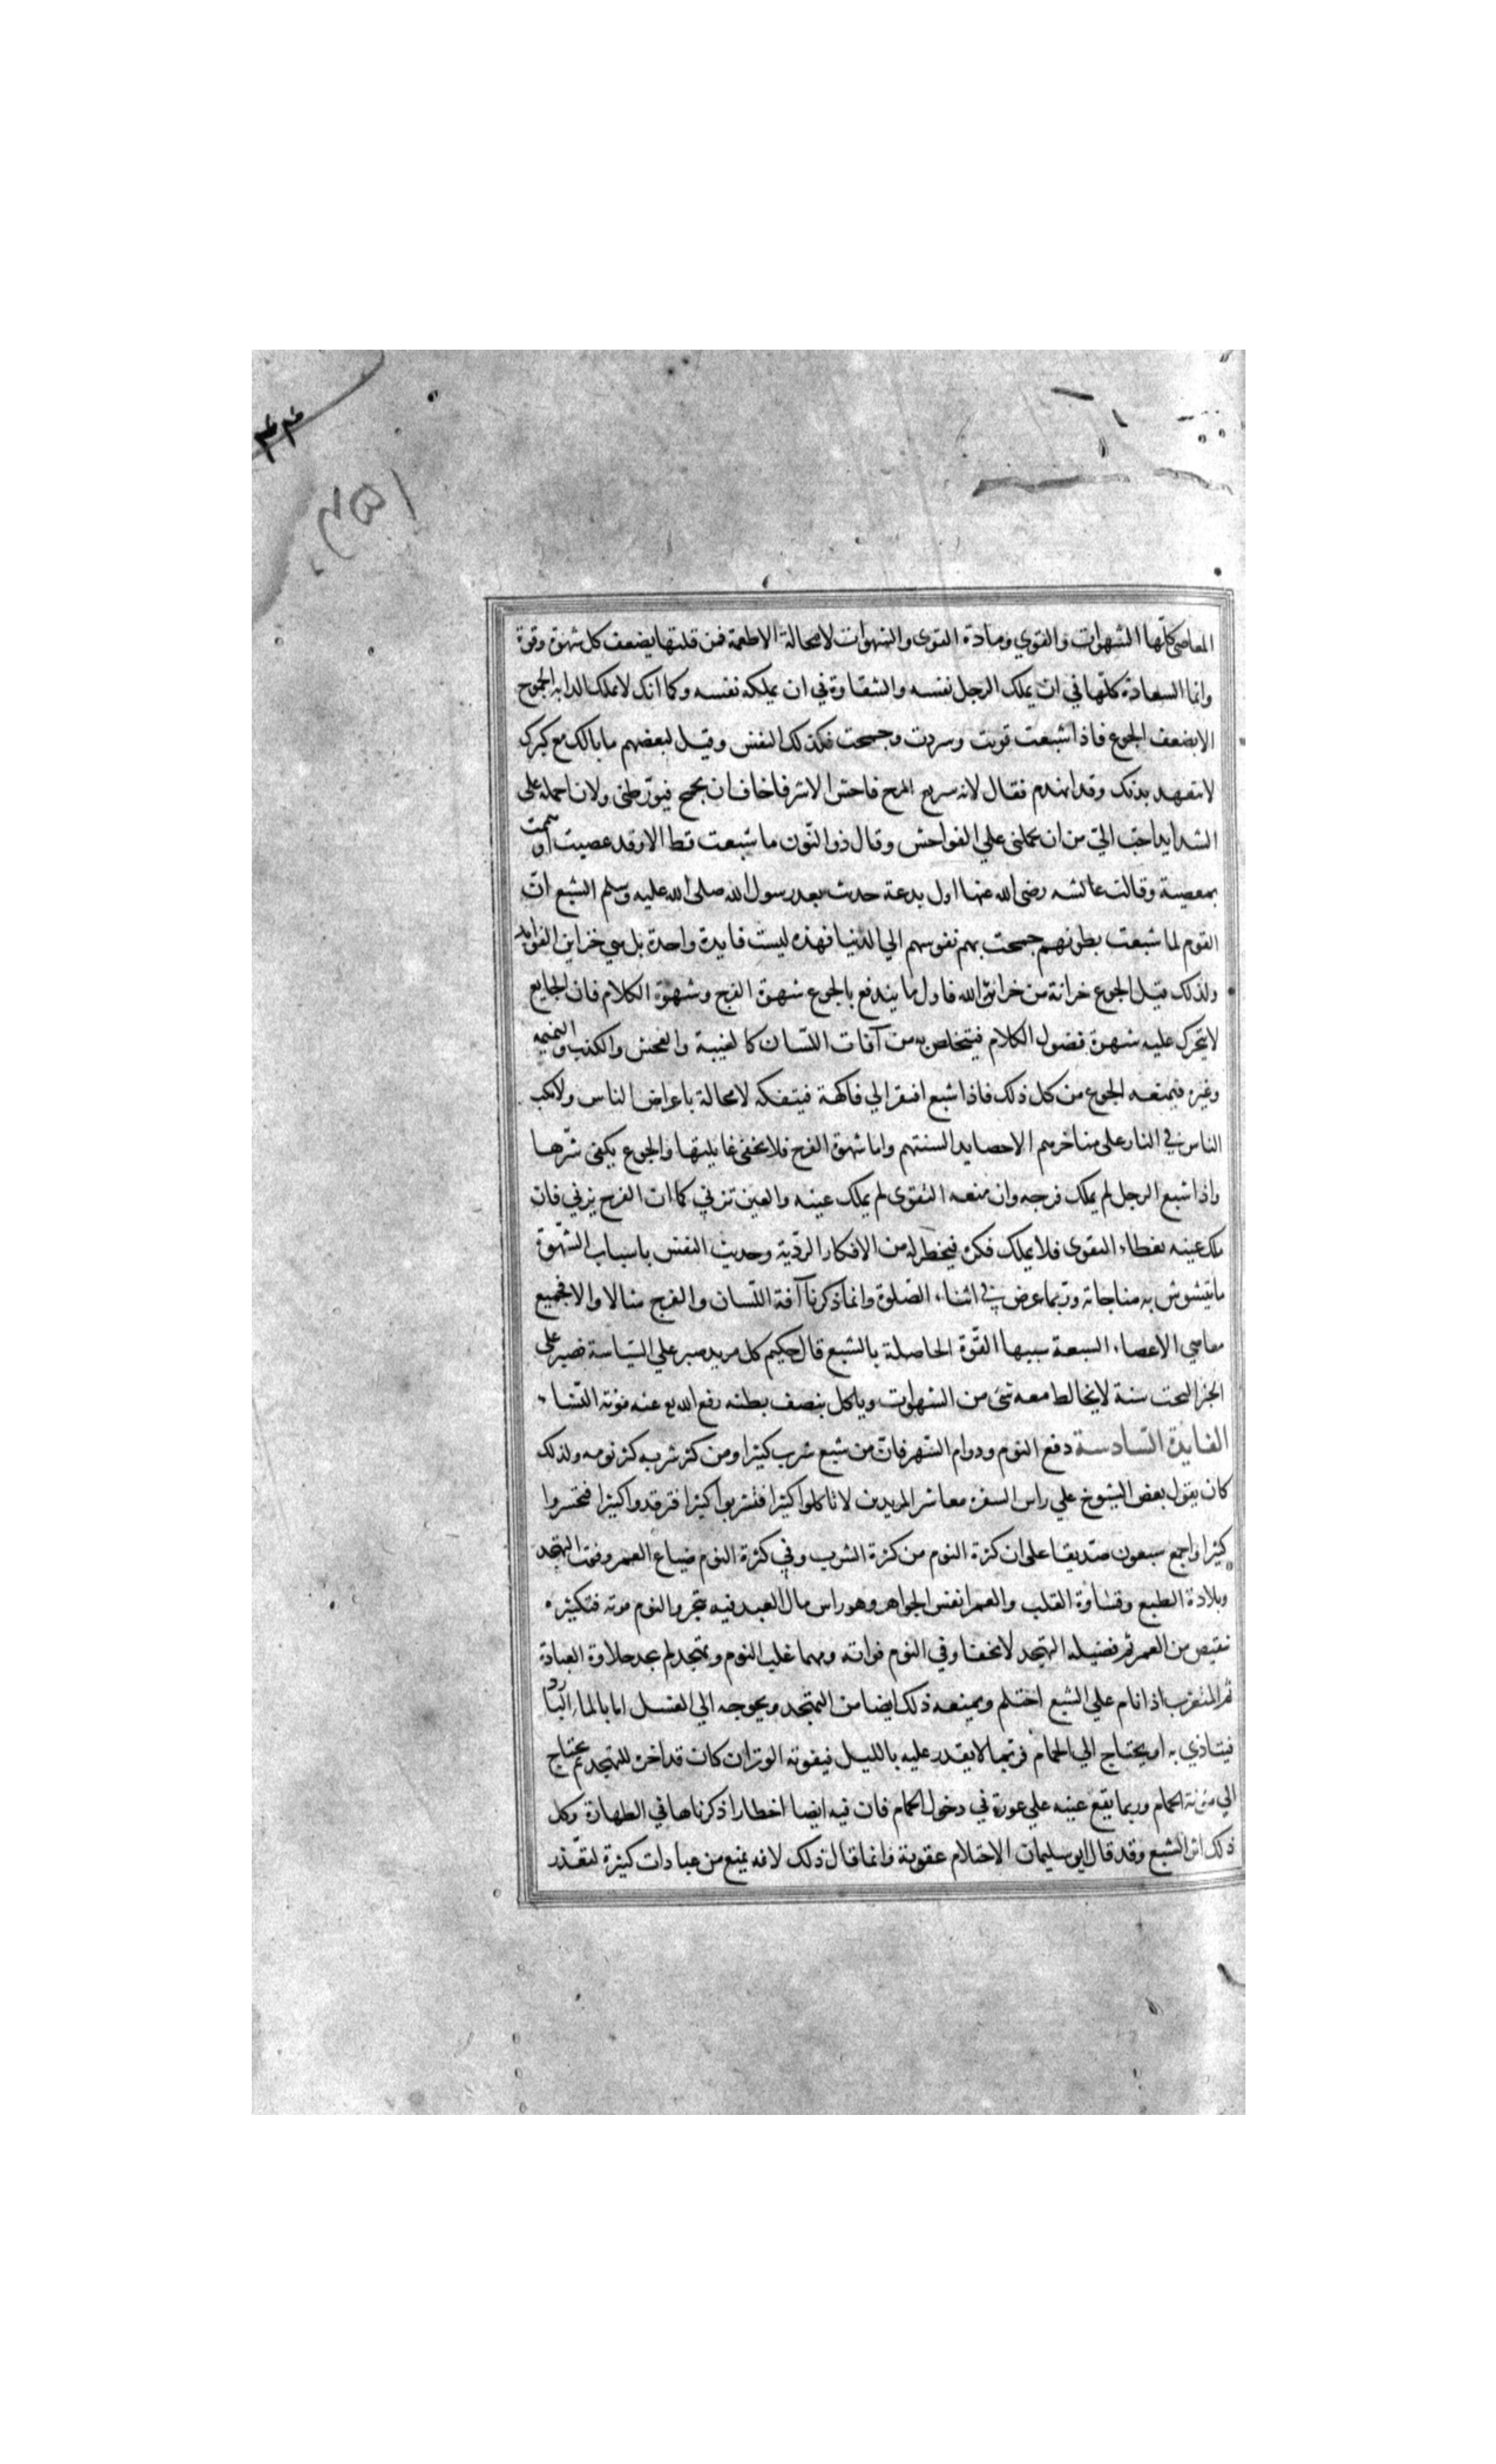 ٤٤
المعاصى كلّها الشهوات والقوي ومادة القوى والشهوات لامحالة الاطعمة فمن قلتها يضعف كل شهوة وقوة
وانما السعادة كلّها في ان يملك الرجل نفسه والشقاوة في ان يملكه نفسه وكما انك لاتملك الدابه الجموح
الابضعف الجوع فاذا شبعت قويت وسردت وجمحت فكذلك النفس وقيل لبعضهم مابالك مع كبرك
لاتتعهد بدنك وقد انهدم فقال لانه سريع المرح فاحش الاشر فاخاف ان يجمح فيورّطنى ولان احمله على
الشدايد احبّ اليّ من ان يحملنى علي الفواحش وقال ذو النّون ما شبعت قط الا وقد عصيت او هممت
بمعصية وقالت عائشه رضى الله عنها اول بدعة حدث بعد رسول الله صلى الله عليه وسلم الشبع انّ
القوم لما شبعت بطونهم جمحت بهم نفوسهم الي الدنيا فهذه ليست فايدة واحدة بل هي خزاين الفوايد
ولذلك قيل الجوع خزانة من خزائن الله فاول ما يندفع بالجوع شهوة الفرج وشهوة الكلام فان الجايع
لايتحرك عليه شهوة فضول الكلام فيتخلص به من آفات اللسان كالغيبة والفحش والكذب والنميمه
وغيره فيمنعه الجوع من كل ذلك فاذا شبع افتقر الي فاكهة فيتفكه لامحالة باعراض الناس ولايكب
الناس في النار على مناخرهم الاحصايد السنتهم واما شهوة الفرج فلايخفى غايلتها والجوع يكفى شرّها
واذا شبع الرجل لم يملك فرجه وان منعه التقوى لم يملك عينه والعين تزني كما ان الفرج يزني فان
ملك عينه بغطاء التقوى فلايملك فكره فيخطر له من الافكار الرديّة وحديث النفس باسباب الشّهوة
مايتشوش به مناجاته وربّما عرض في اثناء الصّلوة وانما ذكرنا آفة اللّسان والفرج مثالا والا فجميع
معاصي الاعضاء السبعة سببها القوّة الحاصلة بالشبع قال حكيم كل مريد صبر علي السّياسة فصبر على
الخبز البحت سنة لايخالط معه شئ من الشهوات وياكل بنصف بطنه رفع الله تع عنه مؤنة النّساء
الفايدة السّادسة دفع النوم ودوام السّهر فانّ من شبع شرب كثيرا ومن كثر شربه كثر نومه ولذلك
كان يقول بعض الشيوخ علي راس السفره معاشر المريدين لا تاكلوا كثيرا فتشربوا كثيرا فترقدوا كثيرا فتخسروا
كثيرا واجمع سبعون صدّيقا على ان كثرة النوم من كثرة الشرب وفي كثرة النوم ضياع العمر وفوت التهجد
وبلادة الطبع وقساوة القلب والعمر انفس الجواهر وهو راس مال العبد فيه يتجر والنوم موته فتكثيره
نقيص من العمر ثم فضيله التهجد لاتخفا وفي النوم فواته ومهما غلب النوم وتهجد لم يجد حلاوة العبادة
ثم المتعزب اذا نام علي الشبع احتلم ويمنعه ذلك ايضا من التهجد ويحوجه الي الغسل اما بالماء البارد
فيتاذي به او يحتاج الي الحمام فربّما لايقدر عليه بالليل فيفوته الوتر ان كان قد اخره للتهجد ثم يحتاج
الي مؤنة الحمام وربما يقع عينه علي عورة في دخول الحمام فان فيه ايضا اخطارا ذكرناها في الطهارة وكل
ذلك اثر الشبع وقد قال ابو سليمان الاحتلام عقوبة وانما قال ذلك لانه يمنع من عبادات كثيرة لتعذّر